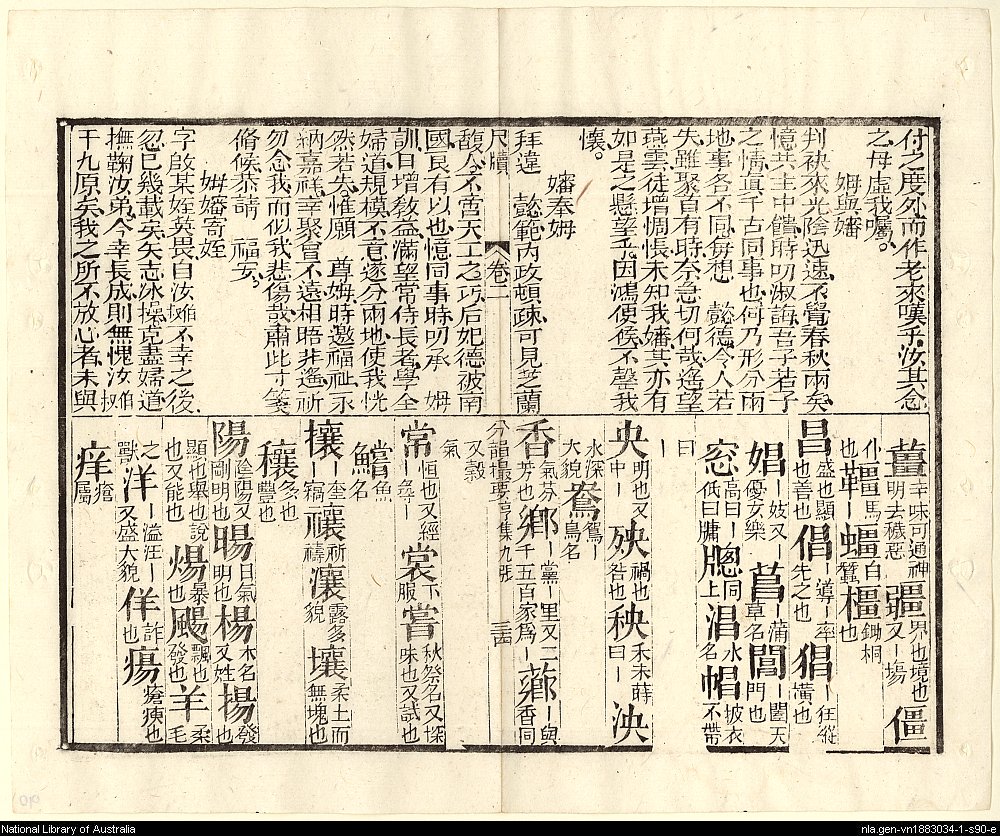 付之度外而作老來嘆乎汝其念
之母虛我囑
姆與嬸
判袂來光陰迅速不覺春秋兩矣
憶共主中饋時叨淑誨吾子若子
之情真千古同事也何乃形分兩
地事各不同毎想 懿德令人若
失雖聚首有時奈急切何哉遙望
燕雲徒增惆悵未知我嬸其亦有
如是之懸望乎因鴻便候不罄我
懷
嬸奉姆
拜違 懿範內政頓疎可見芝蘭
尺牘 卷二
馥人不啻天工之巧后妃德被南
國良有以也憶同事時叨承 姆
訓日增教益滿望常侍長者學全
婦道規模不意遂分兩地使我恍
然若失惟願 尊姆時邀福祉永
納嘉祥幸聚首不遠相晤非遙祈
勿念我而似我悲傷哉肅此寸箋
脩候恭請 福安
姆嬸寄姪
字啟某姪英畏自汝 不幸之後
忽已幾載矣矢志冰操克盡婦道
撫鞠汝弟今幸長成則無愧汝
于九原矣我之所不放心者未與
薑辛味可通神明去穢惡 疆界也境也又一場 僵
仆也 韁馬一 蝗白蠶 橿鋤桐也
昌盛也顯也善也 倡一導一率先之也 猖一狂縱橫也
娼一妓又優女樂 菖一蒲草名 閶一闔天門也
窓高曰一低曰牖 牕同上 淐水名 帽披衣不帶
曰一
央明也又中一 殃禍也咎也 秧禾未蒔曰一 泱
水深大貌 鴦鴛一鳥名
香氣芬芳也 鄉一黨一里又二千五百家爲一 薌一與香同
分韻撮要亨集九張 三四
又穀氣
常恒也又經一尋一 裳下服 嘗秋祭名又探味也又試也
鱨魚名
攘一奎一竊 禳祈禱 瀼露多貌 壤柔土而無塊也
穰多也豐也
陽陰陽又剛明也 暘日氣明也 楊木名又姓 揚發也
顯也舉也說也又能也 煬暴也 颺飄也發也 羊柔毛
之獸 洋一溢汪一又盛大貌 佯詐也 瘍瘡痍也
痒瘡屬
National Library of Australia
nla.gen-vn1883034-1-s90-e